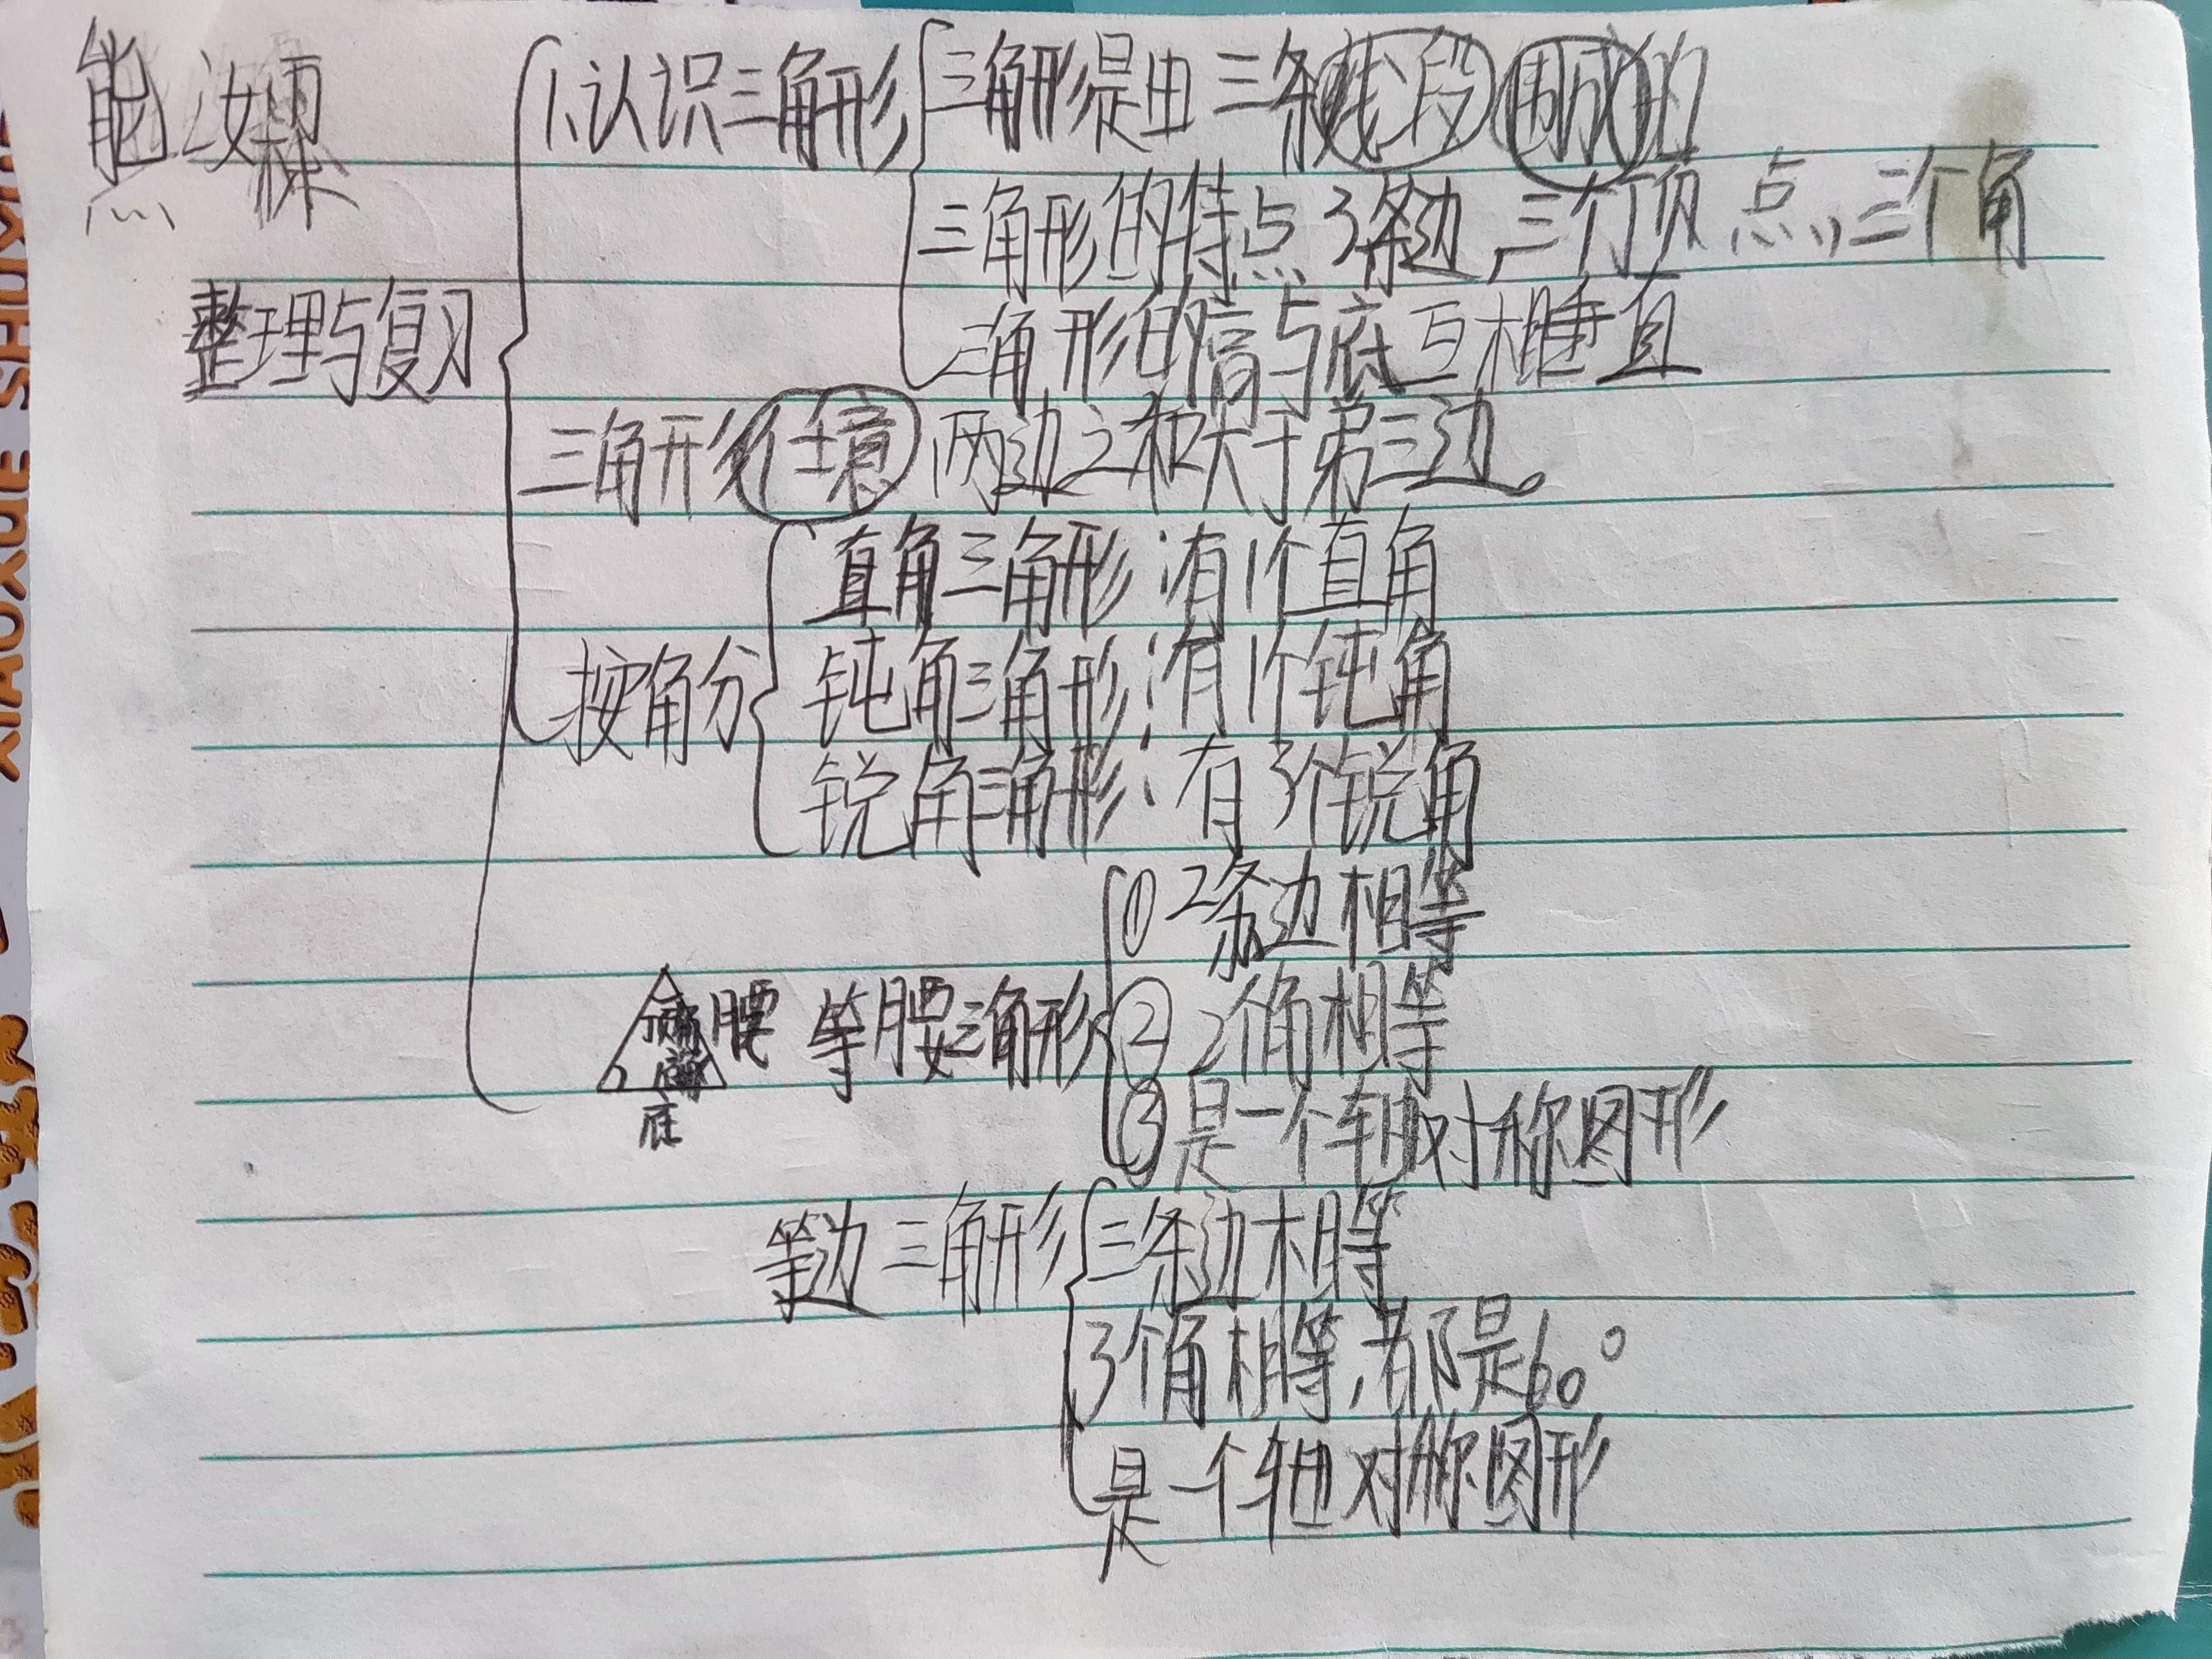 熊汝霖
1、认识三角形
三角形是由三条线段围成的
三角形的特点3条边,三个顶点,三个角
三角形的高与底互相垂直
整理与复习
三角形任意两边之和大于第三边。
按角分
直角三角形:有1个直角
钝角三角形:有1个钝角
锐角三角形:有3个锐角
顶角 腰
底
等腰三角形
①2条边相等
②2个角相等
③是一个轴对称图形
等边三角形
三条边相等
3个角相等,都是60°
是一个轴对称图形
XIAOXUE SHUXUE